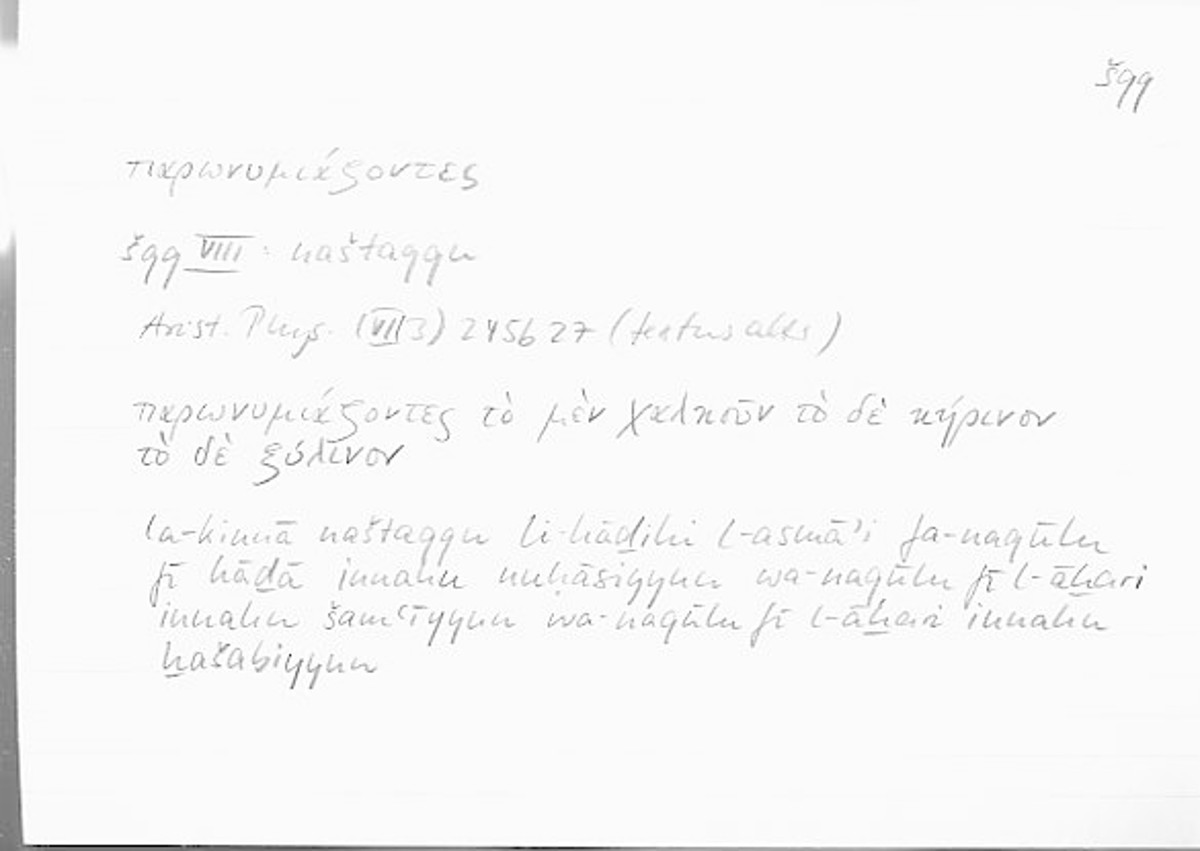 šqq
παρωνυμιάζοντες
šqq VIII : naštaqqu
Arist. Phys. (VII 3) 245b27 (textus alter)
παρωνυμιάζοντες τὸ μὲν χαλκοῦν τὸ δὲ κήρινον
τὸ δὲ ξύλινον
la-kinnā naštaqqu li-hāḏihi l-asmāʾi fa-naqūlu
fī hāḏā innahu nuḥāsiyyun wa-naqūlu fī l-āḫari
innahu šamʿīyyun wa-naqūlu fī l-āḫari innahu
ḫašabiyyun